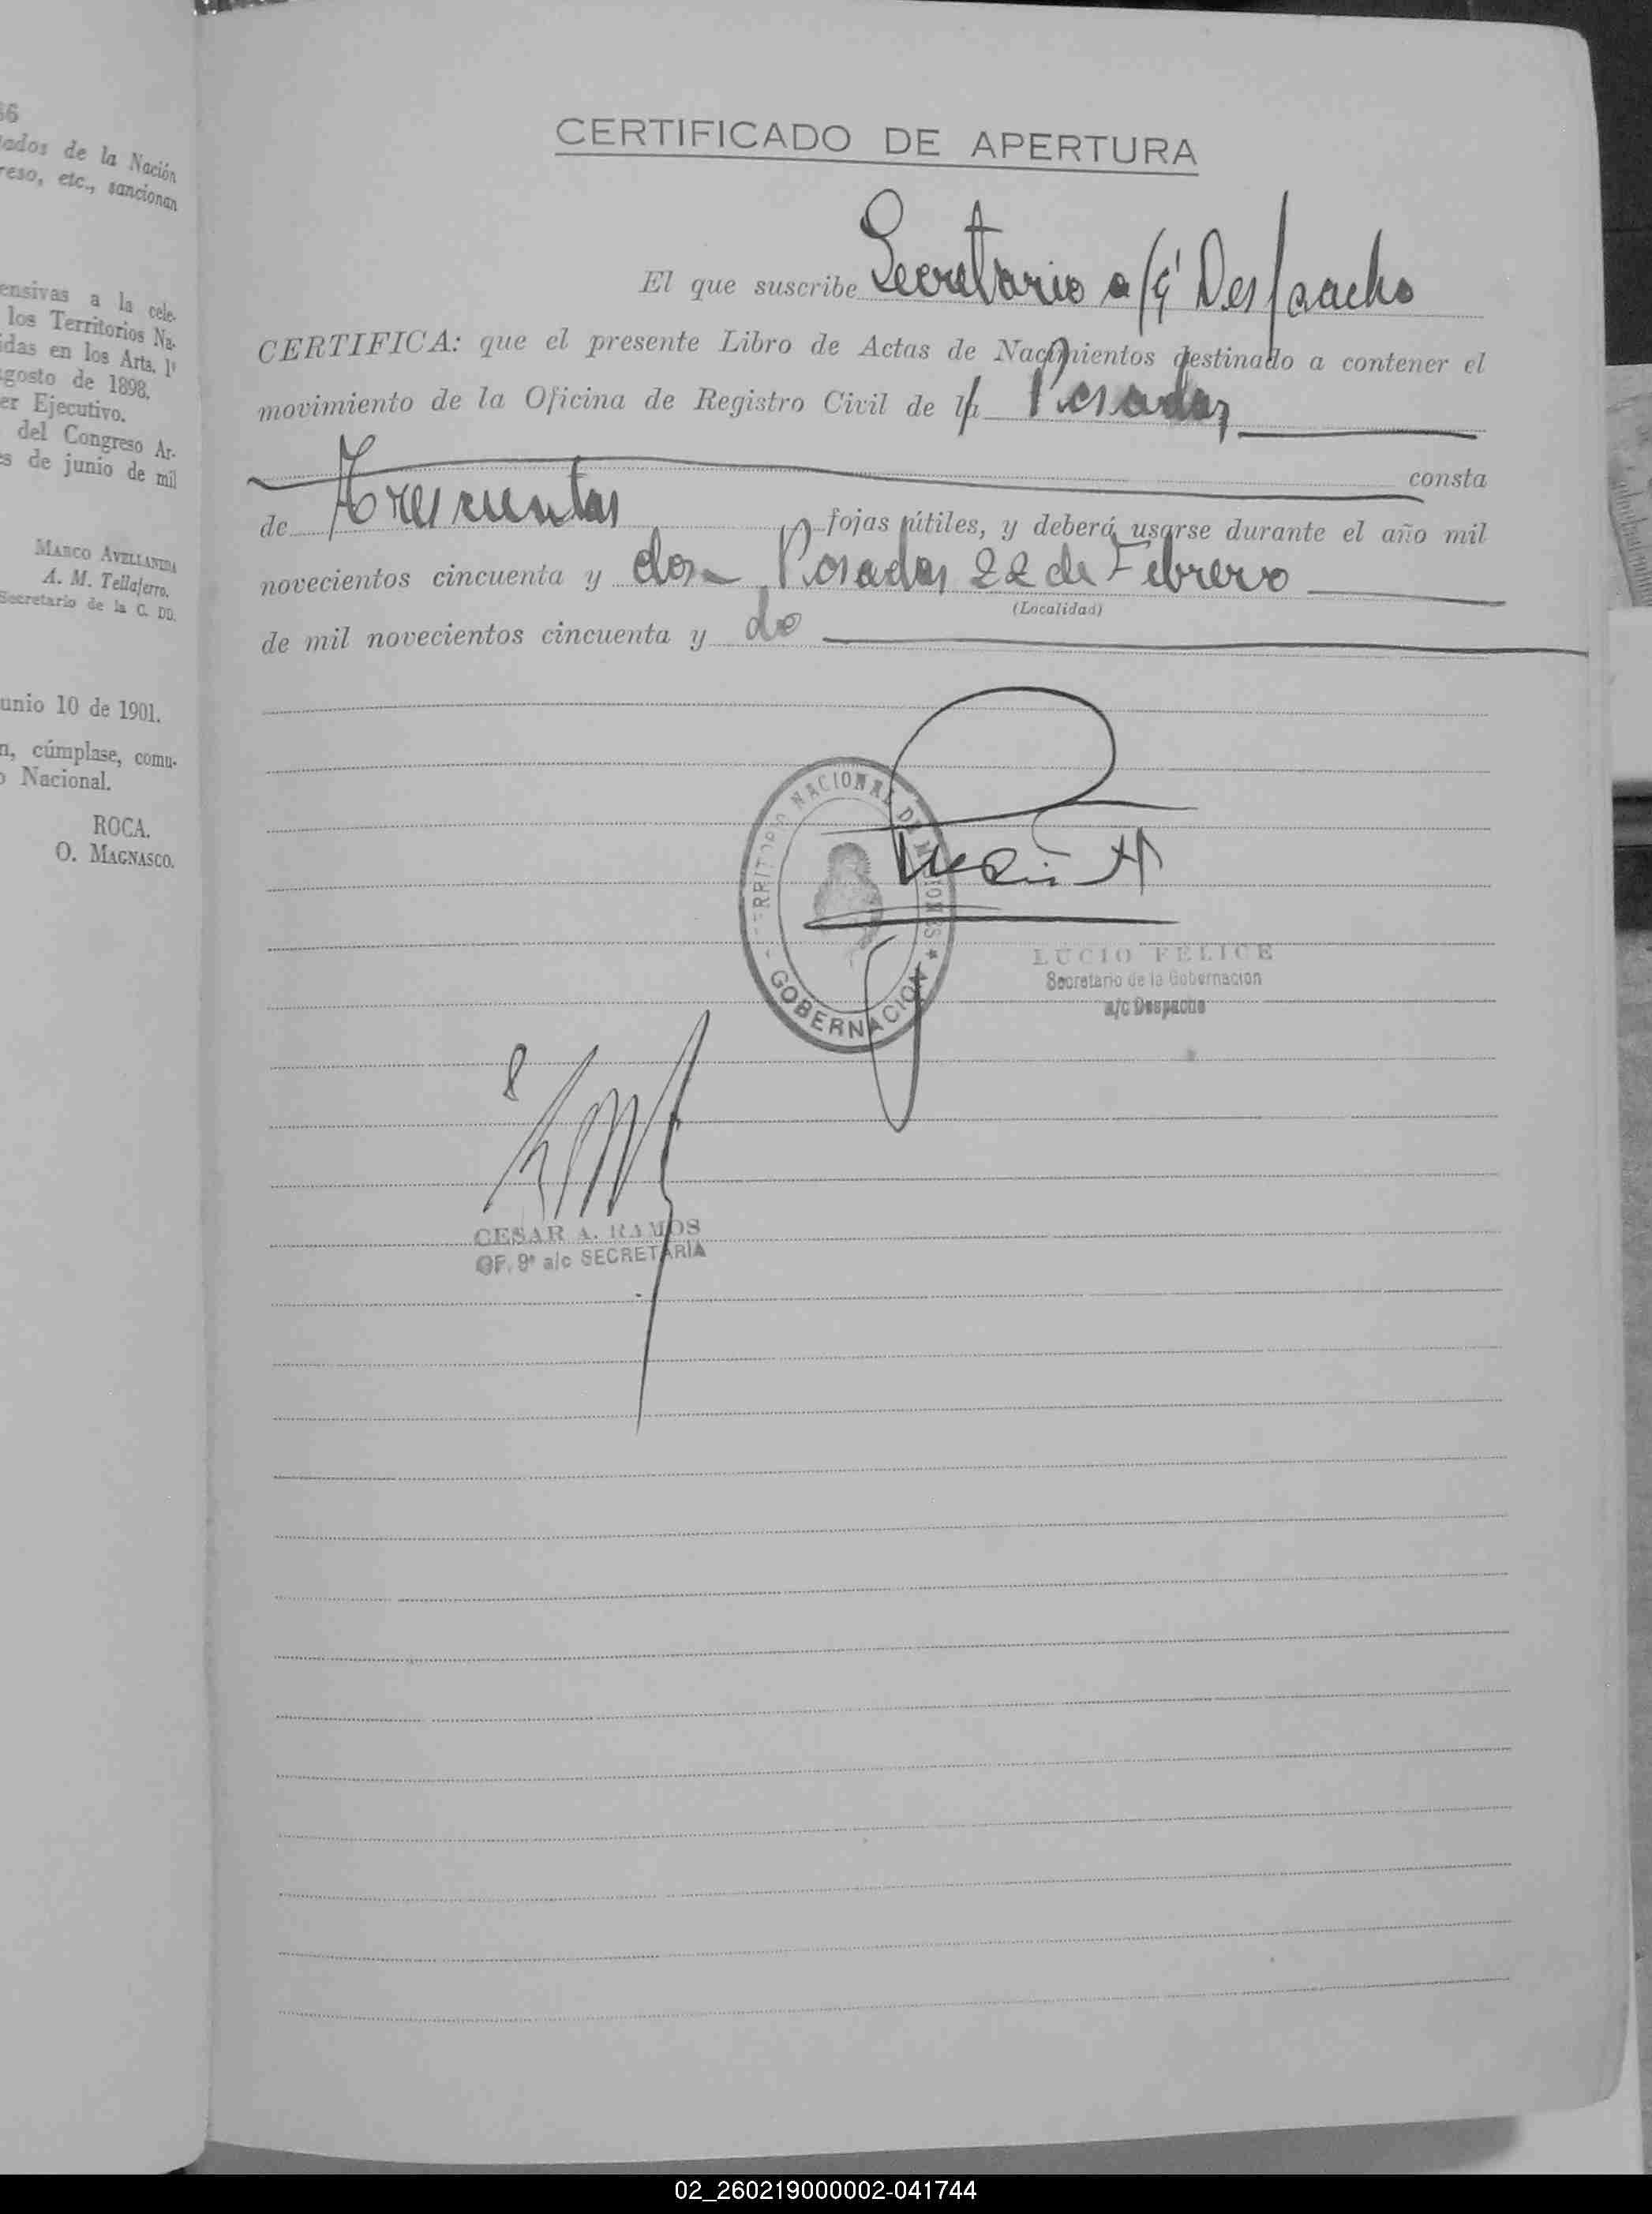 36
tados de la Nación
reso, etc., sancionan
ensivas a la cele-
los Territorios Na-
idas en los Arts. 1º
agosto de 1898.
er Ejecutivo.
del Congreso Ar-
es de junio de mil
MARCO AVELLANEDA
A. M. Tellaferro.
Secretario de la C. DD.
unio 10 de 1901.
n, cúmplase, comu-
o Nacional.
ROCA.
O. MAGNASCO.
CERTIFICADO DE APERTURA
El que suscribe Secretario a/c Despacho
CERTIFICA: que el presente Libro de Actas de Nacimientos destinado a contener el
movimiento de la Oficina de Registro Civil de la Posadas
consta
de Trescientas fojas útiles, y deberá usarse durante el año mil
novecientos cincuenta y dos Posadas 22 de Febrero
(Localidad)
de mil novecientos cincuenta y do
TERRITORIO NACIONAL DE MISIONES
GOBERNACION
LUCIO FELICE
Secretario de la Gobernacion
a/c Despacho
CESAR A. RAMOS
OF. 9º a/c SECRETARIA
02_260219000002-041744